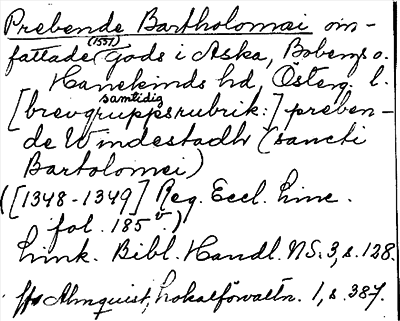 Prebende Bartholomæi om-
fattade (1551) gods i Aska, Bobergs o.
Hanekinds hd, Österg. l.
[brevgruppsrubrik: samtidig] preben-
de Windestadhr (sancti
Bartolomei)
([1348-1349] Reg. Eccl. Linc.
fol. 185 v.)
Link. Bibl. Handl. NS. 3, s. 128.
Almquist, Lokalförvaltn. 1, s. 387.